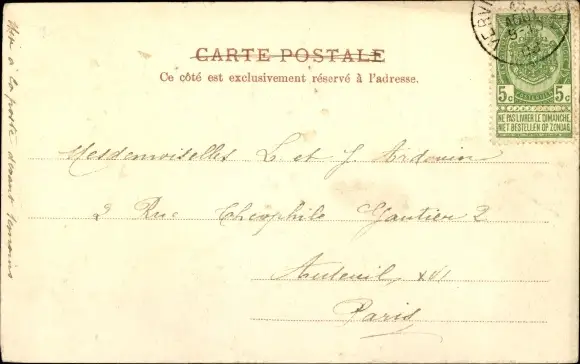 CARTE POSTALE
Ce côté est exclusivement réservé à l'adresse.
VERVI
5c 5c
NE PAS LIVRER LE DIMANCHE
NIET BESTELLEN OP ZONDAG
Mesdemoiselles L. et J. Ardouin
2 Rue Théophile Gautier 2
Auteuil XVI
Paris
Mis à la poste devant témoins